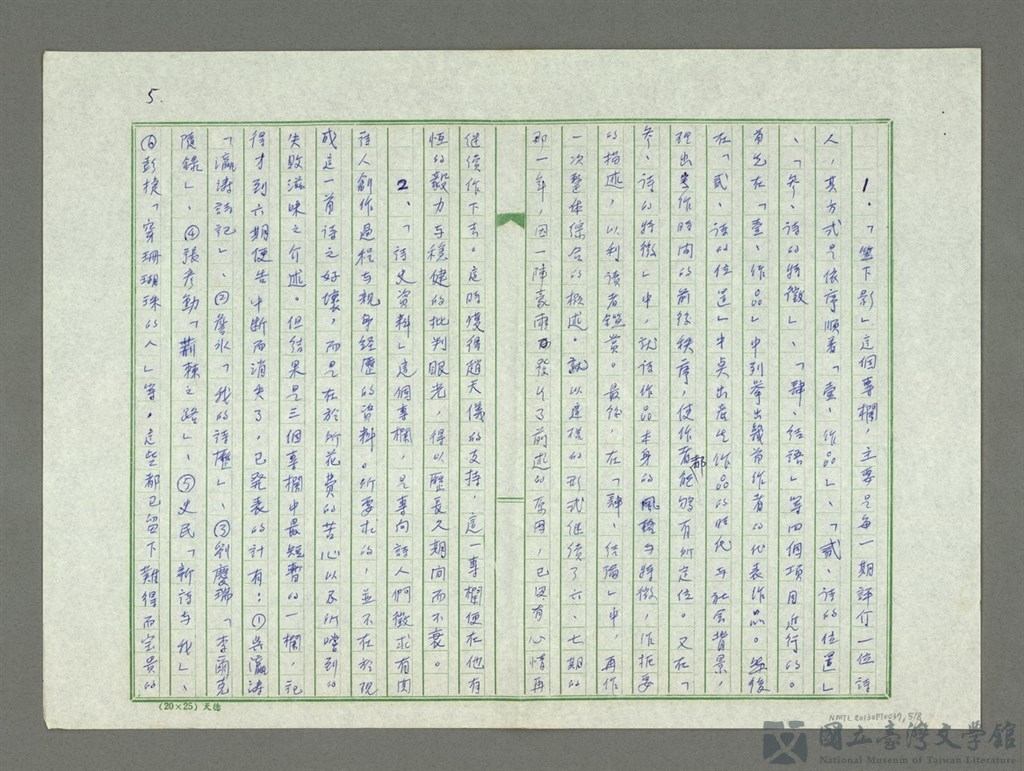 5.
1.「笠下影」這個專欄，主要是每一期評介一位詩
人，其方式是依序順着「壹、作品」、「貳、詩的位置」
、「參、詩的特徵」、「肆、結語」等四個項目進行的。
首先在「壹、作品」中列擧出幾首作者的代表作品。然後
在「貳、詩的位置」中點出產生作品的時代與社會背景，
理出寫作時間的前後秩序，使作者都能夠有所定位。又在「
參、詩的特徵」中，就詩作品本身的風格與特徵，作扼要
的描述，以利讀者鑑賞。最後，在「肆、結論」中，再作
一次整体綜合的概述。就以這樣的形式继續了六、七期的
那一年，因一陣豪雨發生了前述的原因，已沒有心情再
继續作下去。這時獲得趙天儀的支持，這一專欄便在他有
恒的毅力与穩健的批判眼光，得以歷長久期间而不衰。
2、「詩史資料」這個專欄，是專向詩人們徵求有関
詩人創作過程与親身経歷的資料。所要求的，並不在於現
成這一首詩之好壞，而是在於所花費的苦心以及所嚐到的
失敗滋味之介述。但結果是三個專欄中最短暫的一欄，記
得才到六期便告中斷而消失了，已發表的計有：①吳瀛涛
「瀛涛詩記」、②詹冰「我的詩歷」、③劉慶瑞「李爾克
隨錄」、④張彥勳「荊棘之路」、⑤史民「新詩与我」、
⑥彭捷「穿珊瑚珠的人」等。這些都已留下難得而宝貴的
(20×25) 天德
國立臺灣文學館
National Museum of Taiwan Literature